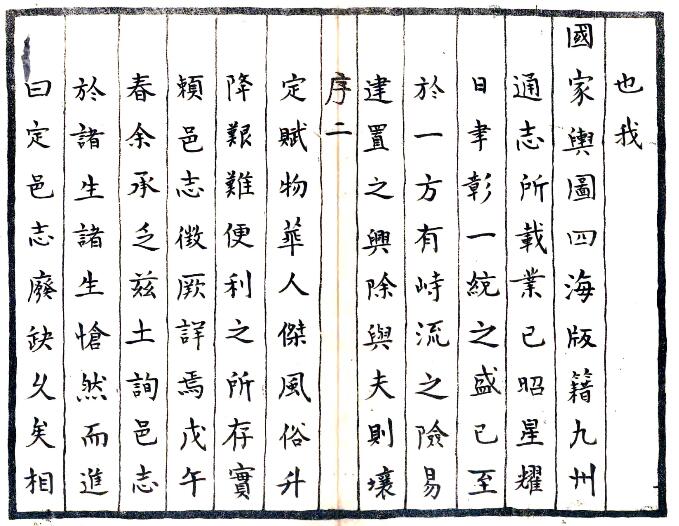 也我
國家輿圖四海版籍九州
通志所載業已昭星耀
日聿彰一統之盛已至
於一方有峙流之險易
建置之興除與夫則壤
序二
定賦物華人傑風俗升
降艱難便利之所存實
賴邑志徵厥詳焉戊午
春余承乏兹土詢邑志
於諸生諸生愴然而進
曰定邑志廢缺久矣相